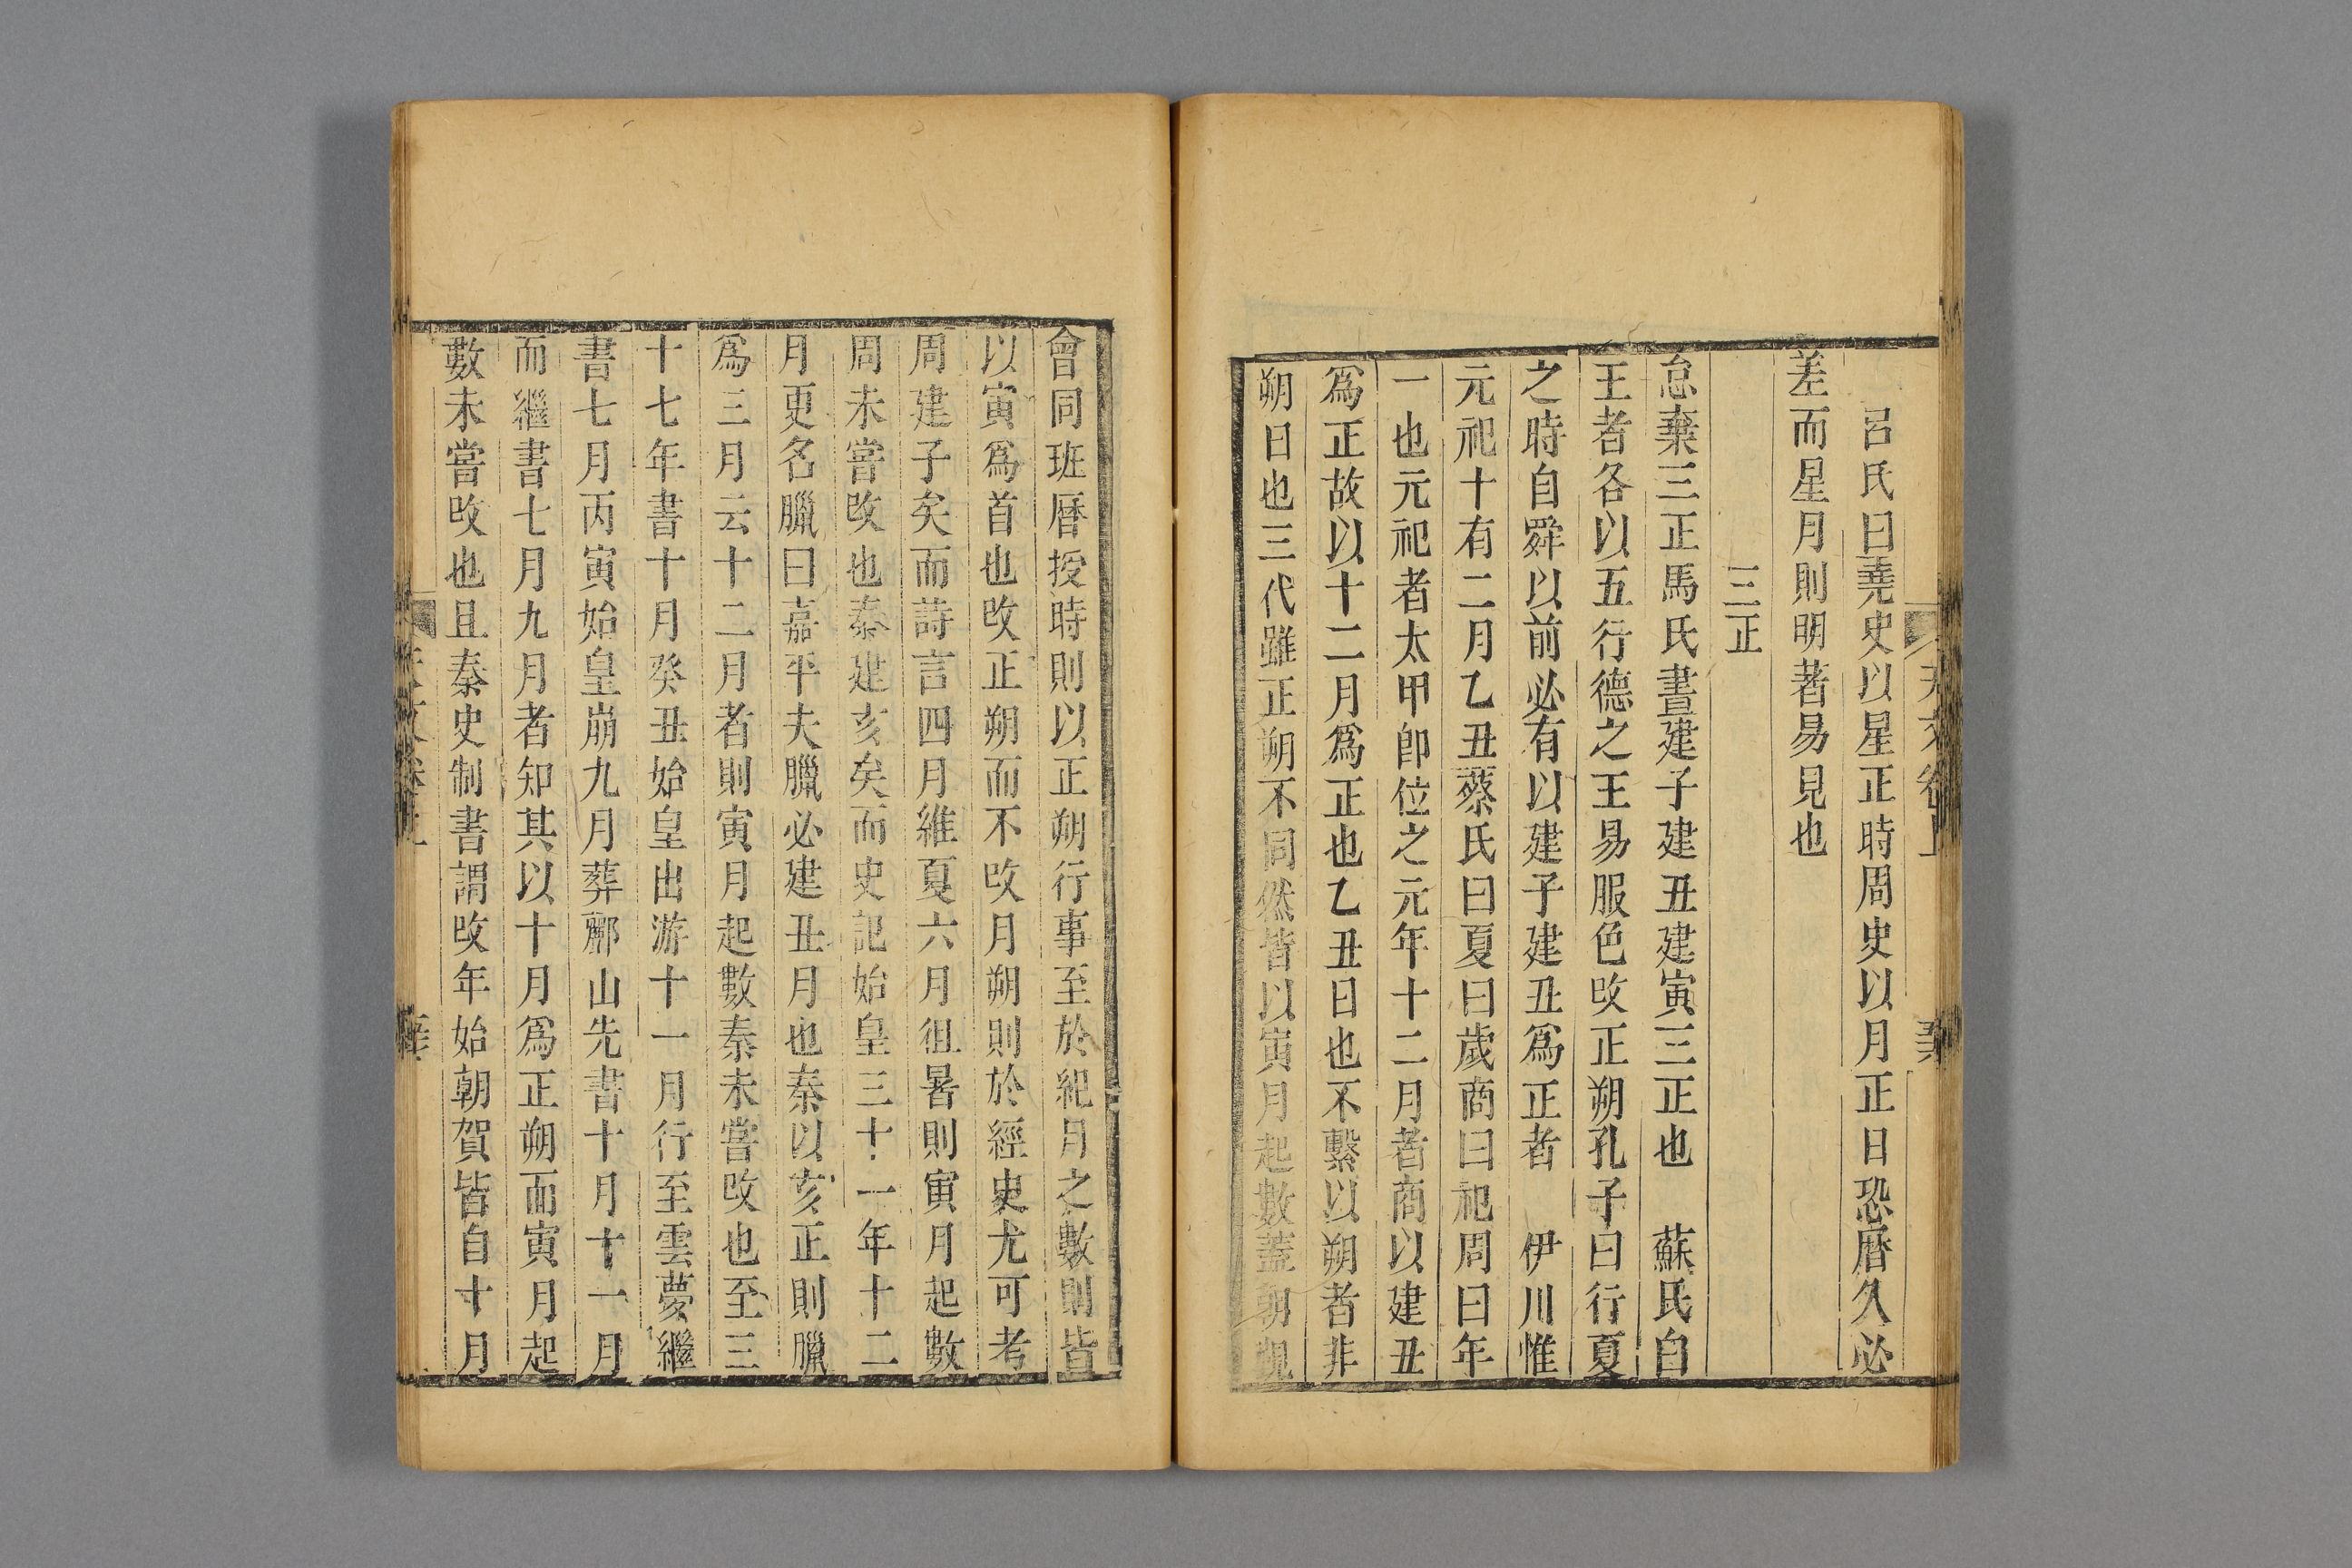 呂氏曰堯史以星正時周史以月正日恐曆久必
差而星月則明著易見也
三正
怠棄三正馬氏晝建子建丑建寅三正也　蘇氏自
王者各以五行德之王易服色改正朔孔子曰行夏
之時自舜以前必有以建子建丑爲正者　伊川惟
元祀十有二月乙丑蔡氏曰夏曰歲商曰祀周曰年
一也元祀者太甲卽位之元年十二月者商以建丑
爲正故以十二月爲正也乙丑日也不繫以朔者非
朔日也三代雖正朔不同然皆以寅月起數蓋朝覲
會同班曆授時則以正朔行事至於紀月之數則皆
以寅爲首也改正朔而不改月朔則於經史尤可考
周建子矣而詩言四月維夏六月徂暑則寅月起數
周未嘗改也秦建亥矣而史記始皇三十一年十二
月更名臘曰嘉平夫臘必建丑月也秦以亥正則臘
爲三月云十二月者則寅月起數秦未嘗改也至三
十七年書十月癸丑始皇出游十一月行至雲夢繼
書七月丙寅始皇崩九月葬酈山先書十月十一月
而繼書七月九月者知其以十月爲正朔而寅月起
數未嘗改也且秦史制書謂改年始朝賀皆自十月